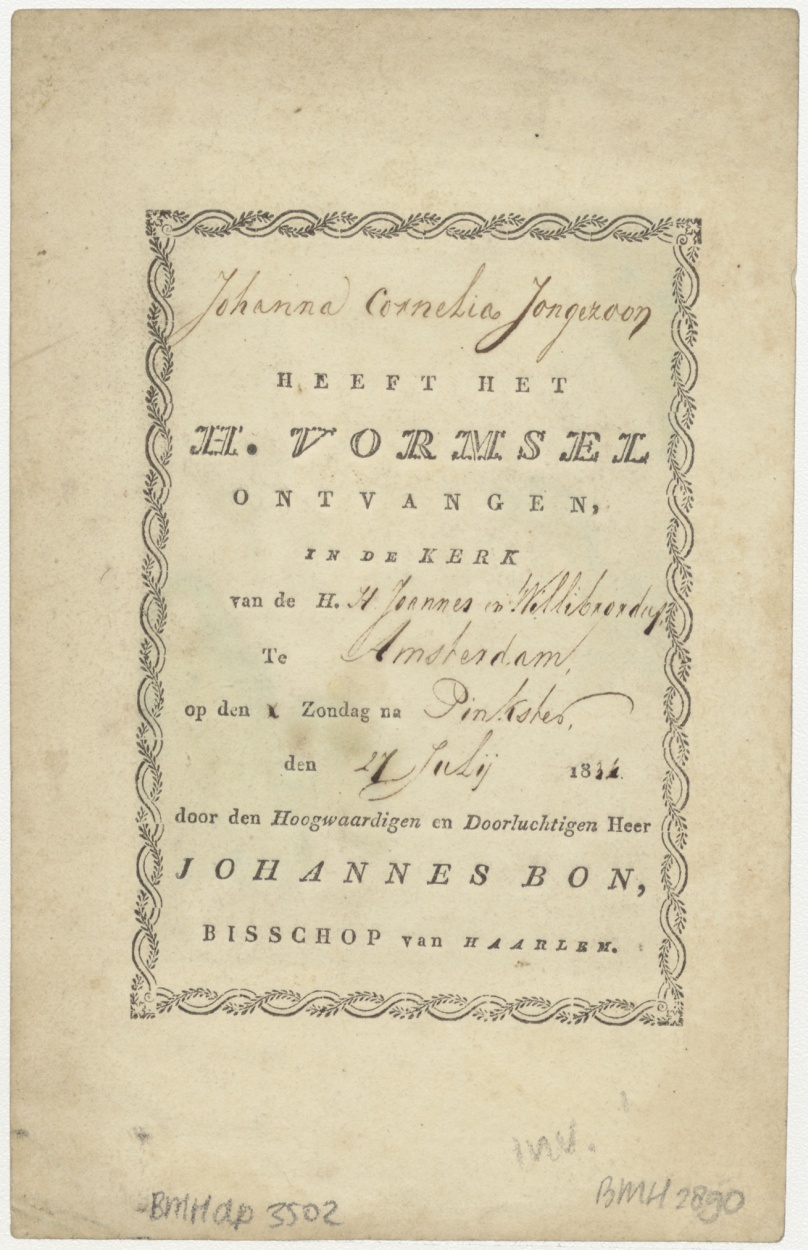 Johanna Cornelia Jongezoon
HEEFT HET
H. VORMSEL
ONTVANGEN,
IN DE KERK
van de H. H Joannes en Willibrordus
Te Amsterdam,
op den Zondag na Pinkster,
den 27 Julij 18
door den Hoogwaardigen en Doorluchtigen Heer
JOHANNES BON,
BISSCHOP van HAARLEM.
inv.
BMH dp 3502
BMH 2890